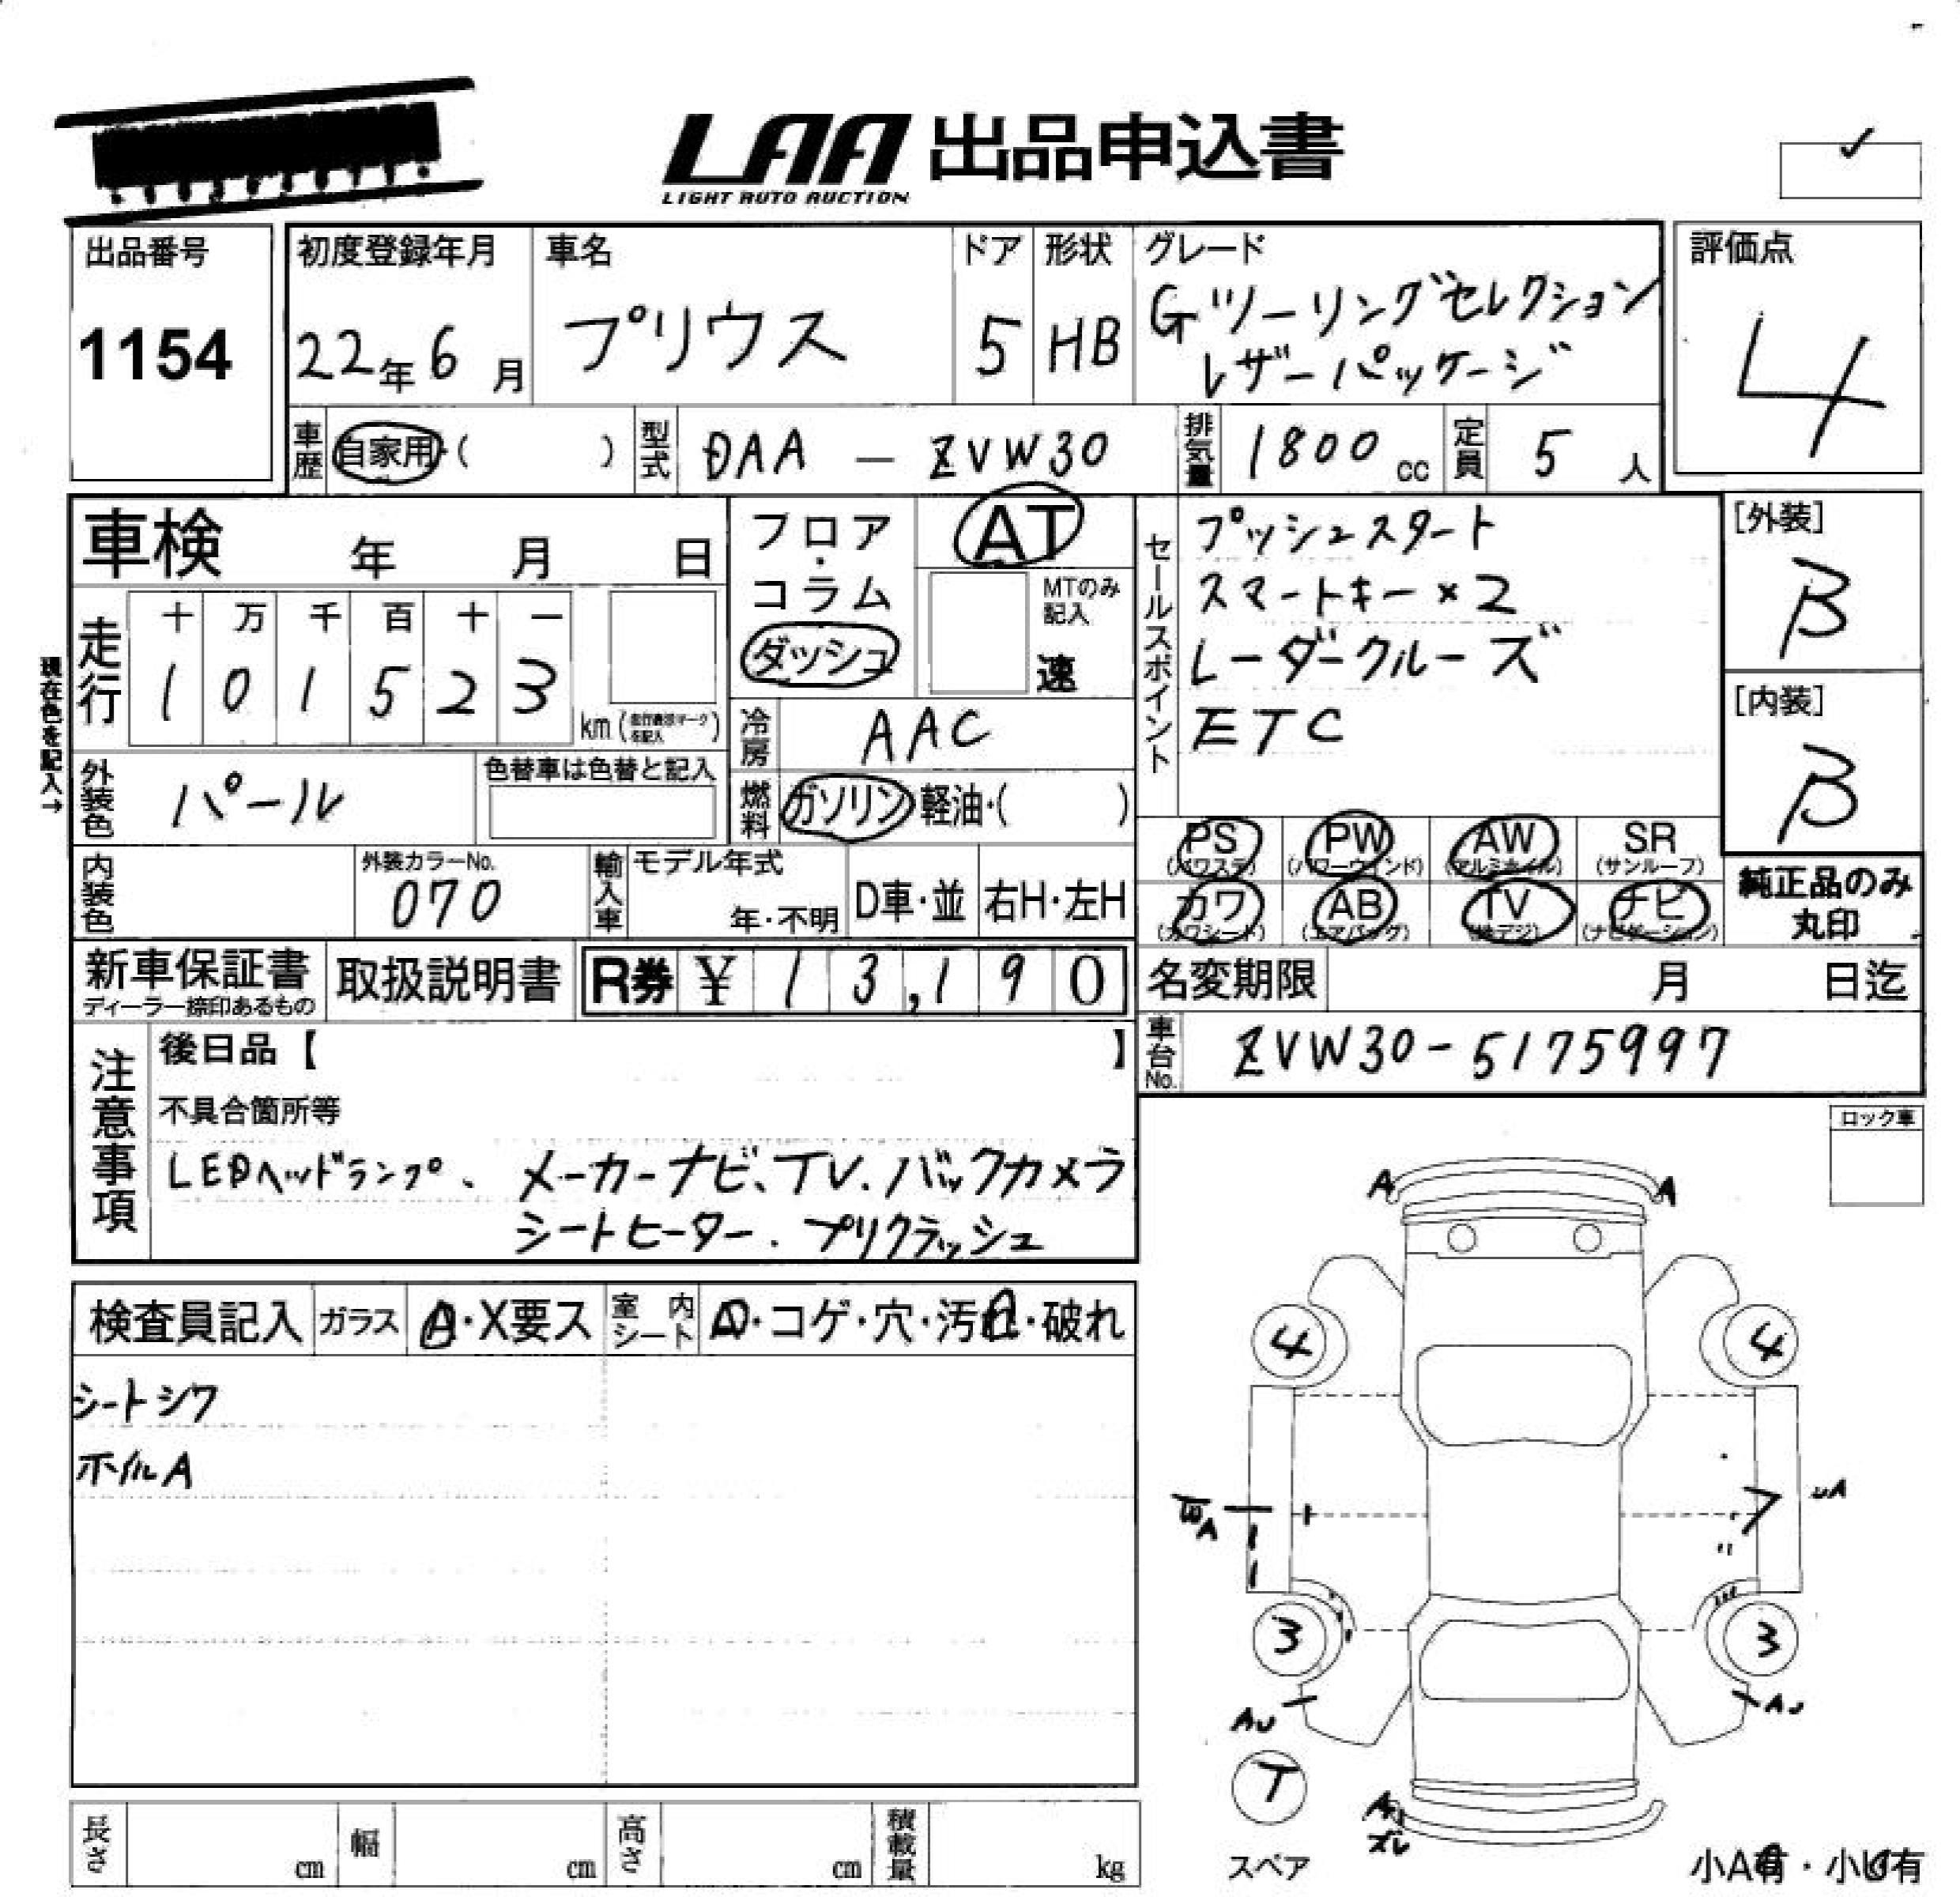 LAA 出品申込書
LIGHT AUTO AUCTION
出品番号
1154
初度登録年月
22年6月
車名
プリウス
ドア
5
形状
HB
グレード
Gツーリングセレクション
レザーパッケージ
評価点
4
車歴
自家用・( )
型式
DAA - ZVW30
排気量
1800 cc
定員
5 人
車検 年 月 日
現在色を記入→
走行
十 万 千 百 十 一
1 0 1 5 2 3
km
外装色
パール
色替車は色替と記入
内装色
外装カラーNo.
070
フロア・コラム
ダッシュ
AT
MTのみ記入
速
冷房
AAC
燃料
ガソリン 軽油・( )
輸入車
モデル年式
年・不明
D車・並
右H・左H
セールスポイント
プッシュスタート
スマートキー×2
レーダークルーズ
ETC
[外装]
B
[内装]
B
PS
(パワステ)
PW
(パワーウィンド)
AW
(アルミホイル)
SR
(サンルーフ)
カワ
(カワシート)
AB
(エアバッグ)
TV
(地デジ)
ナビ
(ナビゲーション)
純正品のみ
丸印
新車保証書
ディーラー捺印あるもの
取扱説明書
R券 ¥ 13,190
名変期限 月 日迄
車台No.
ZVW30-5175997
注意事項
後日品【 】
不具合箇所等
LEDヘッドランプ、メーカーナビ、TV、バックカメラ
シートヒーター、プリクラッシュ
ロック車
検査員記入
ガラス
A・X要ス
室内シート
・コゲ・穴・汚れ・破れ
シートシワ
ホイルA
A A
4 4
A
UA
3 3
AU
AU
T
スペア
ズレ
長さ cm
幅 cm
高さ cm
積載量 kg
小A有・小U有